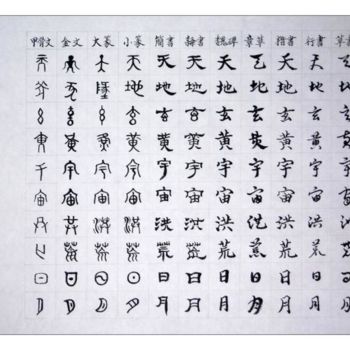 甲骨文 金文 大篆 小篆 簡書 隸書 魏碑 章草 楷書 行書 草
天 天 天 天 天 天 天 天 天 天
地 地 地 地 地 地 地 地 地 地
玄 玄 玄 玄 玄 玄 玄 玄 玄 玄
黃 黃 黃 黃 黃 黃 黃 黃 黃 黃
宇 宇 宇 宇 宇 宇 宇 宇 宇 宇
宙 宙 宙 宙 宙 宙 宙 宙 宙 宙
洪 洪 洪 洪 洪 洪 洪 洪 洪 洪
荒 荒 荒 荒 荒 荒 荒 荒 荒 荒
日 日 日 日 日 日 日 日 日 日
月 月 月 月 月 月 月 月 月 月